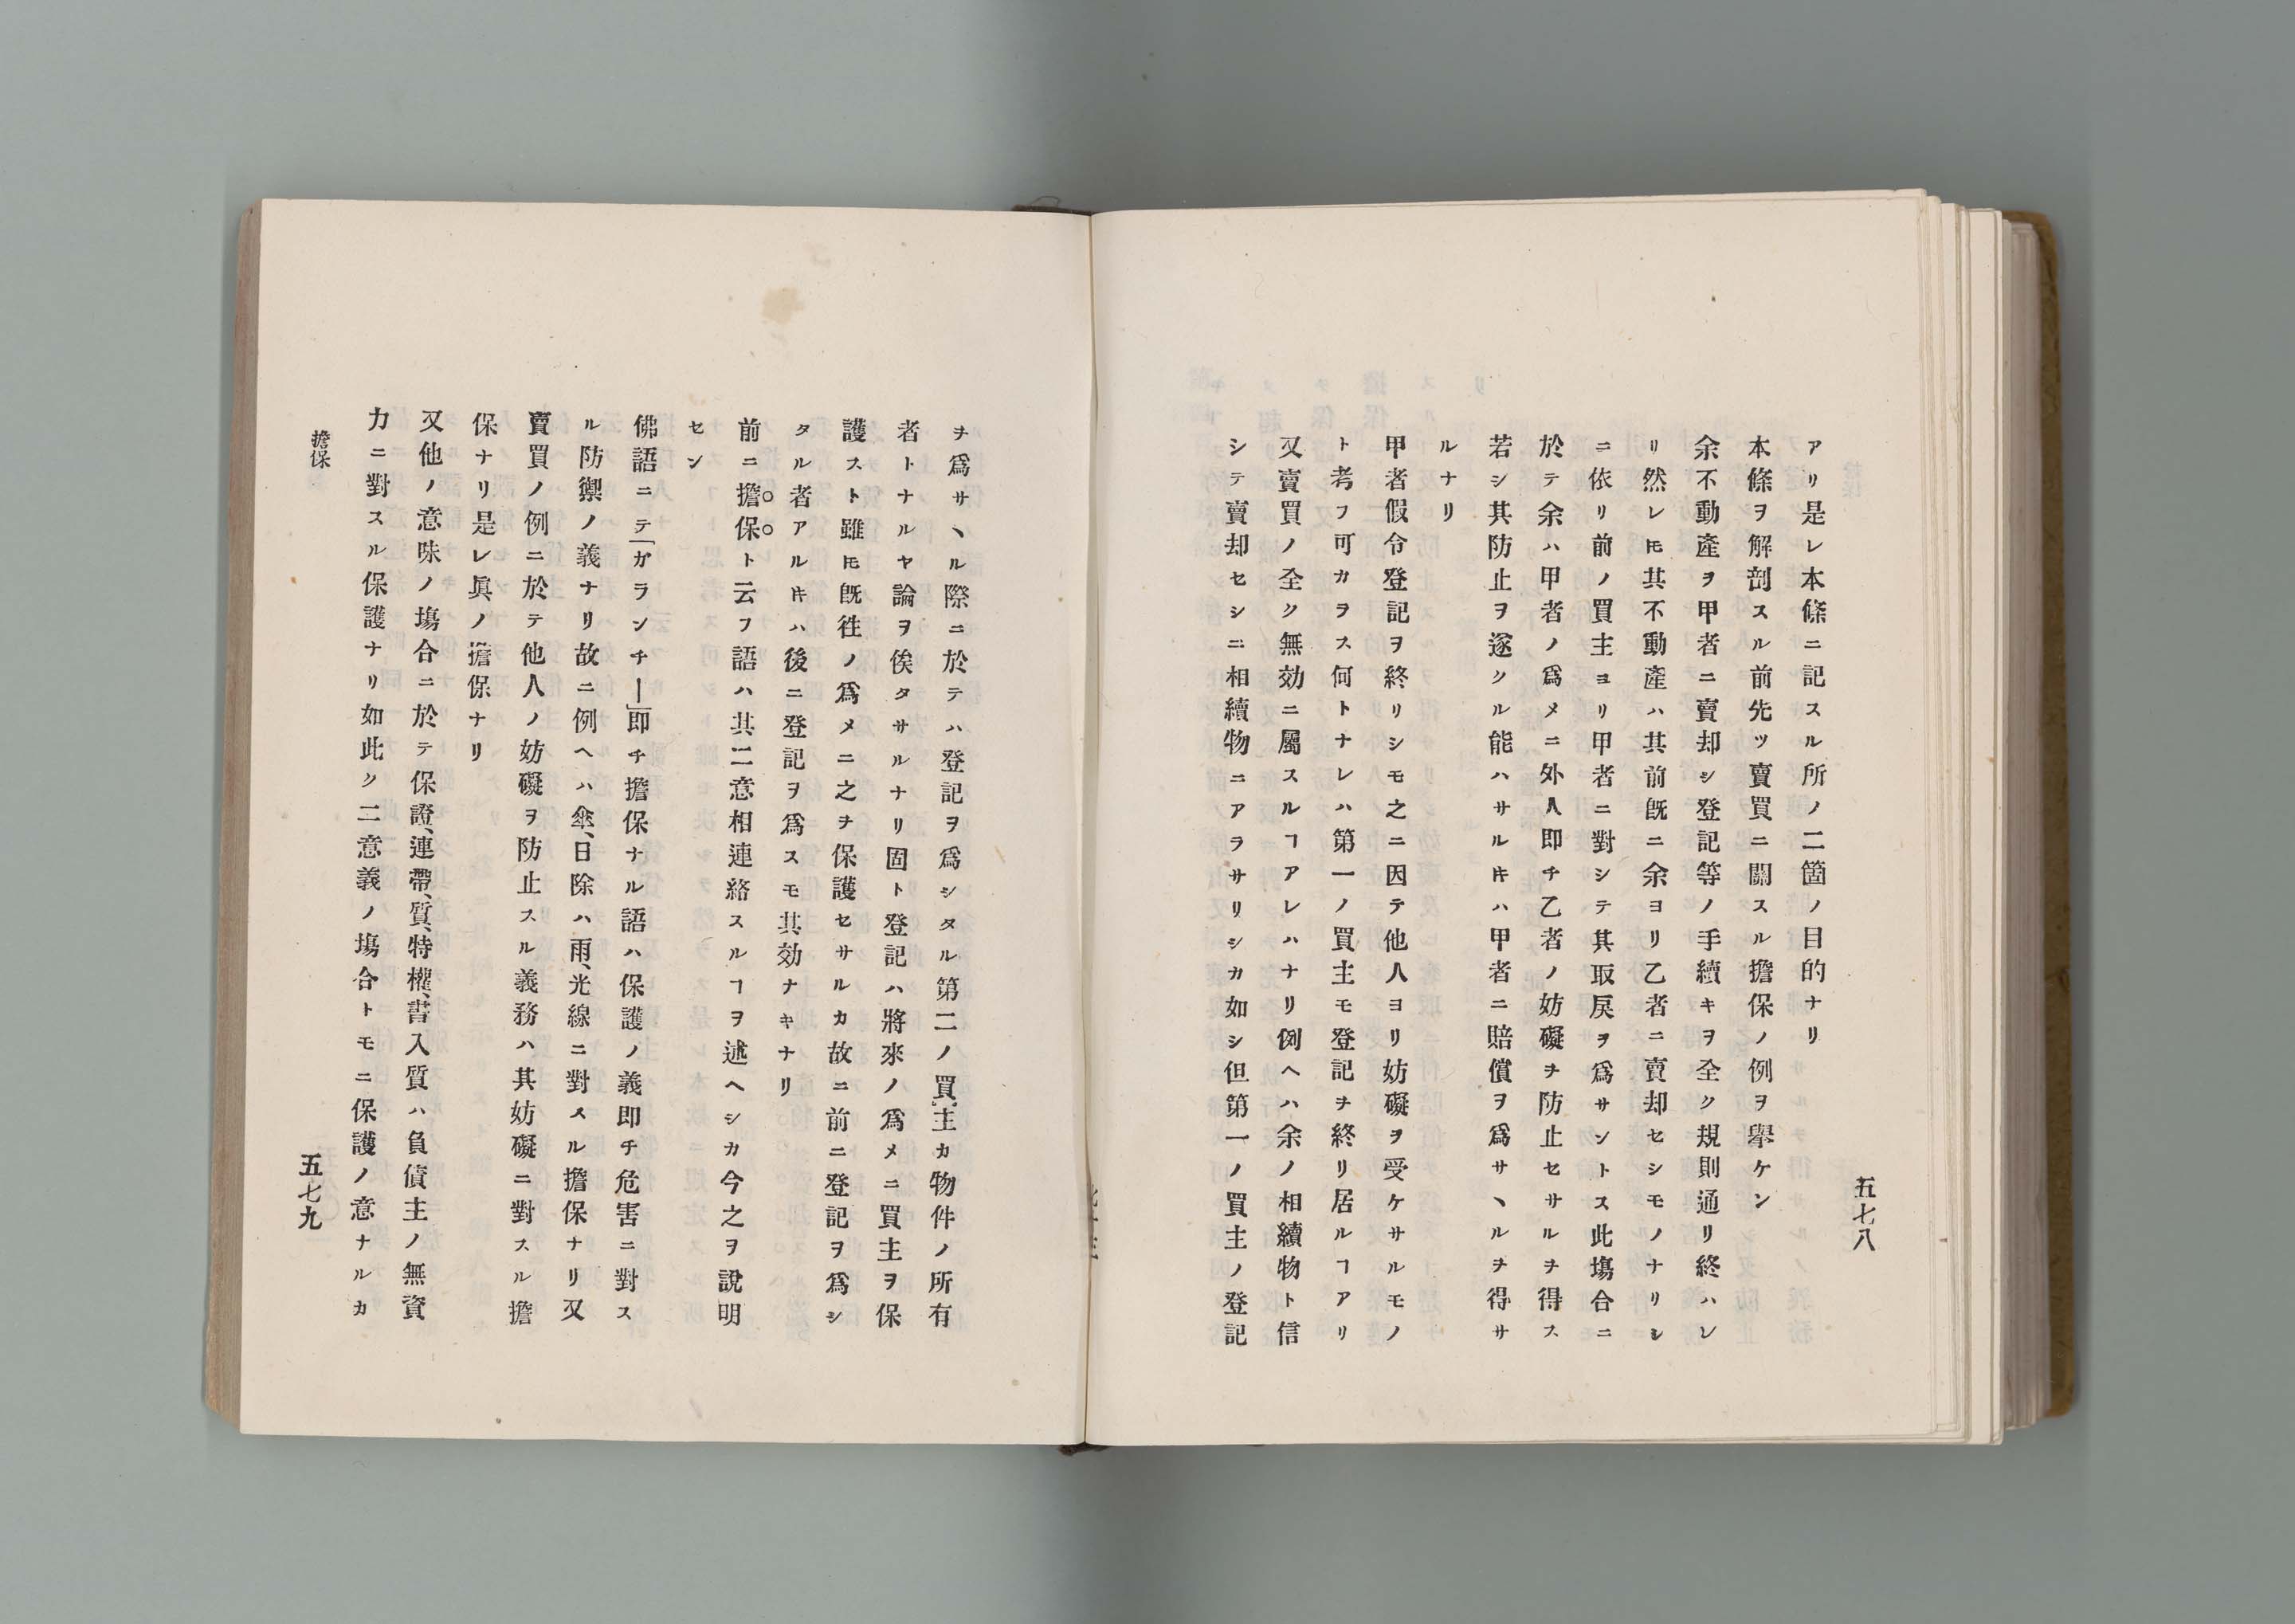 五七八
アリ是レ本條ニ記スル所ノ二箇ノ目的ナリ
本條ヲ解剖スル前先ツ賣買ニ關スル擔保ノ例ヲ擧ケン
余不動產ヲ甲者ニ賣却シ登記等ノ手續キヲ全ク規則通リ終ハレ
リ然レ𪜈其不動產ハ其前既ニ余ヨリ乙者ニ賣却セシモノナリシ
ニ依リ前ノ買主ヨリ甲者ニ對シテ其取戾ヲ爲サントス此塲合ニ
於テ余ハ甲者ノ爲メニ外人即チ乙者ノ妨礙ヲ防止セサルヲ得ス
若シ其防止ヲ遂クル能ハサル𪜈ハ甲者ニ賠償ヲ爲サヽルヲ得サ
ルナリ
甲者假令登記ヲ終リシモ之ニ因テ他人ヨリ妨礙ヲ受ケサルモノ
ト考フ可カラス何トナレハ第一ノ買主モ登記ヲ終リ居ルヿアリ
又賣買ノ全ク無効ニ屬スルヿアレハナリ例ヘハ余ノ相續物ト信
シテ賣却セシニ相續物ニアラサリシカ如シ但第一ノ買主ノ登記
ヲ爲サヽル際ニ於テハ登記ヲ爲シタル第二ノ買主カ物件ノ所有
者トナルヤ論ヲ俟タサルナリ固ト登記ハ將來ノ爲メニ買主ヲ保
護スト雖𪜈既徃ノ爲メニ之ヲ保護セサルカ故ニ前ニ登記ヲ爲シ
タル者アル𪜈ハ後ニ登記ヲ爲スモ其効ナキナリ
前ニ擔保ト云フ語ハ其二意相連絡スルヿヲ述ヘシカ今之ヲ說明
セン
佛語ニテ「ガランチー」即チ擔保ナル語ハ保護ノ義即チ危害ニ對ス
ル防禦ノ義ナリ故ニ例ヘハ傘、日除ハ雨、光線ニ對スル擔保ナリ又
賣買ノ例ニ於テ他人ノ妨礙ヲ防止スル義務ハ其妨礙ニ對スル擔
保ナリ是レ眞ノ擔保ナリ
又他ノ意味ノ塲合ニ於テ保證、連帶、質、特權、書入質ハ負債主ノ無資
力ニ對スル保護ナリ如此ク二意義ノ塲合トモニ保護ノ意ナルカ
擔保
五七九